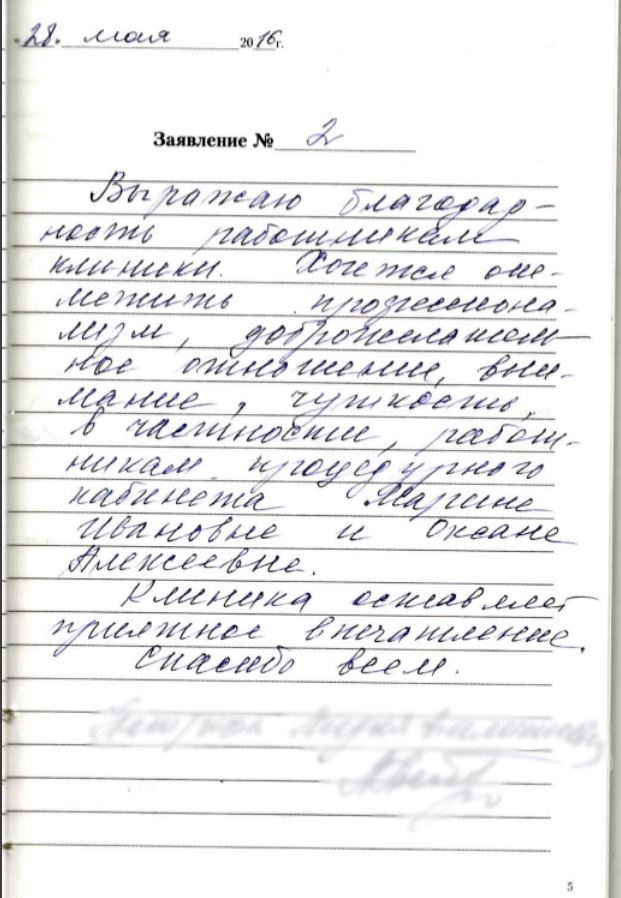 28. мая 2016 г.
Заявление № 2
Выражаю благодар-
ность работникам
клиники. Хочется от-
метить профессиона-
лизм, доброжелатель-
ное отношение, вни-
мание, чуткость,
в частности, работ-
никам процедурного
кабинета Марине
Ивановне и Оксане
Алексеевне.
Клиника оставляет
приятное впечатление.
Спасибо всем.
5